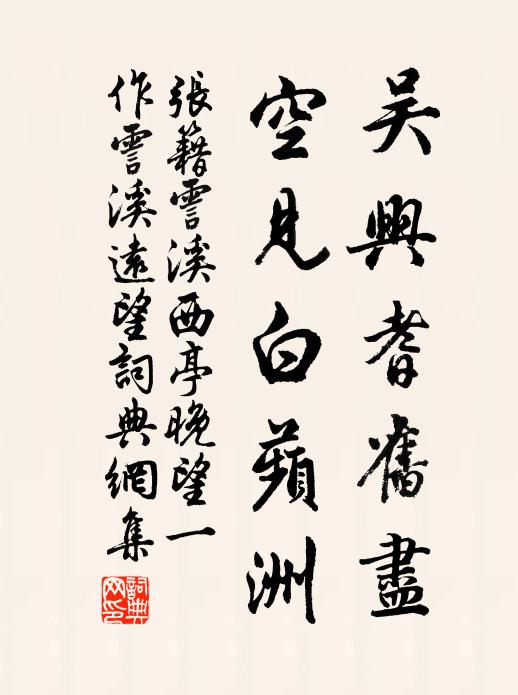 吴興耆舊盡
空見白蘋洲
張籍霅溪西亭晚望一
作霅溪遠望詞典網集
詞典
网印